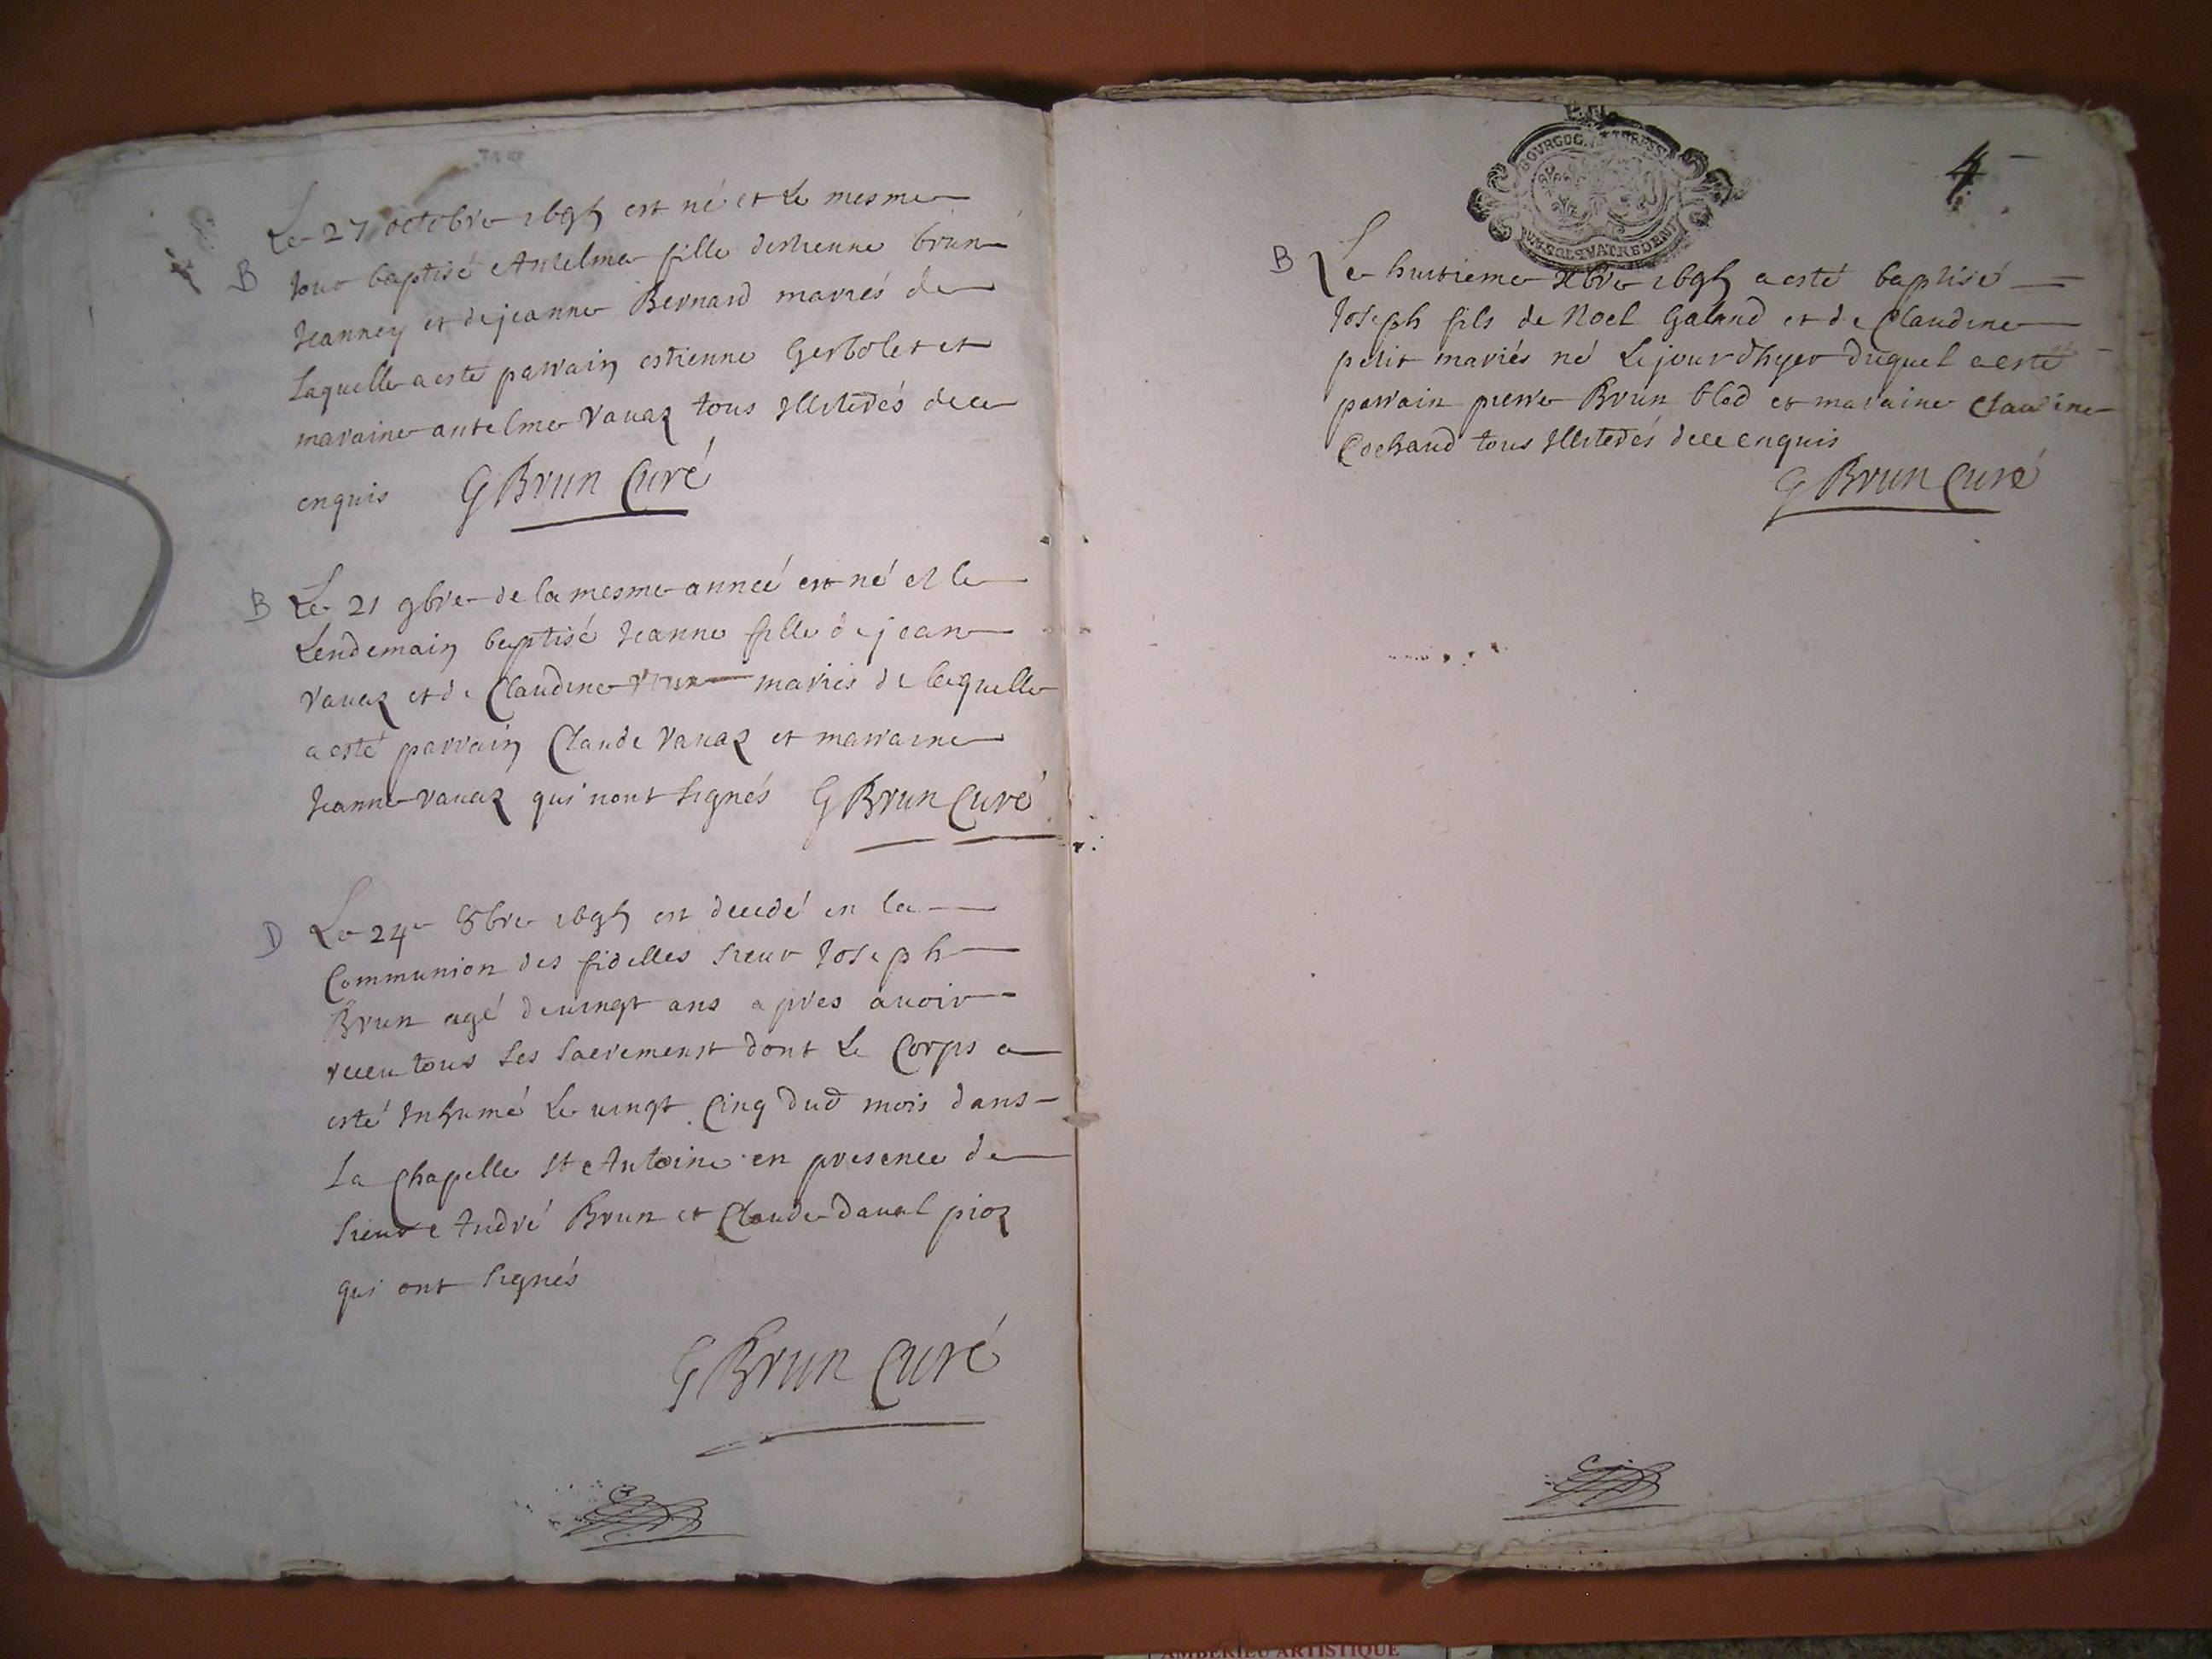 Le 27 octobre 1695 est né et le mesme
B jour baptisé Antelme fille destienne brun
Jeanney et de jeanne Bernard mariés de
Laquelle a esté parrain estienne Gerbolet et
maraine antelme Vauaz tous Illiterés de ce
enquis G Brun Curé
B Le 21 9bre de la mesme anneé est né et le
Lendemain baptisé Jeanne fille de jean
Vauaz et de Claudine mariés de laquelle
a esté parrain Claude Vauaz et marraine
Jeanne Vauaz qui nont signés G Brun Curé
D Le 24e 8bre 1695 est decedé en la
Communion des fidelles sieur Joseph
Brun agé de uingt ans apres auoir
receu tous ses sacremenst dont Le Corps a
esté Inhumé Le uingt Cinq dud mois dans
La Chapelle St Antoine en presence de
sieur André Brun et Claude daual pioz
qui ont signés
G Brun Curé
BOURGOG. ET BRESSE
4
B Le huitieme Xbre 1695 a esté baptisé
Joseph fils de Noel Galand et de Claudine
petit mariés né Le jour dhyer duquel a esté
parrain pierre Brun blod et maraine Claudine
Cochand tous Illiterés de ce enquis
G Brun Curé
AMBERIEU ARTISTIQUE